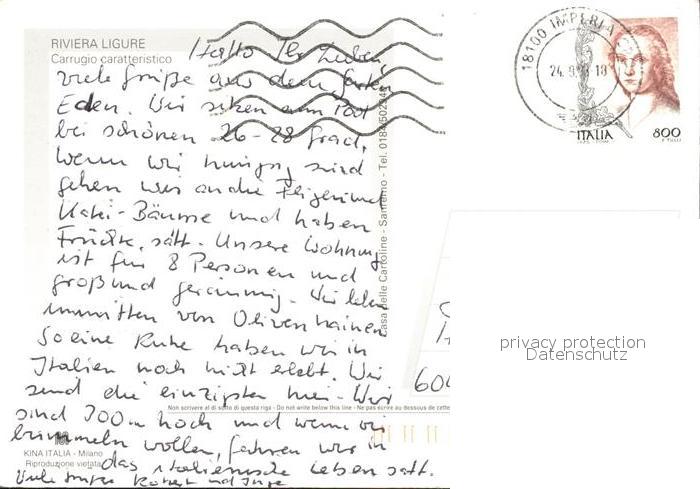 RIVIERA LIGURE
Carrugio caratteristico
Hallo Ihr Lieben,
viele Grüße aus dem Garten
Eden. Wir sitzen am Pool
bei schönen 26-28 Grad,
wenn wir hungrig sind
gehen wir an die Feigen und
Kaki-Bäume und haben
Früchte satt. Unsere Wohnung
ist für 8 Personen und
groß und geräumig. Wir leben
inmitten von Olivenhainen
So eine Ruhe haben wir in
Italien noch nicht erlebt. Wir
sind die einzigsten hier. Wir
sind 300m hoch und wenn wir
bummeln wollen, fahren wir in
das italienische Leben satt.
Viele Grüße Robert und Inge
KINA ITALIA - Milano
Riproduzione vietata
Casa delle Cartoline - Sanremo - Tel. 0184/502
Non scrivere al di sotto di questa riga - Do not write below this line - Ne pas écrire au dessous de cette
18100 IMPERIA
24.9.98 18
ITALIA 800
privacy protection
Datenschutz
604